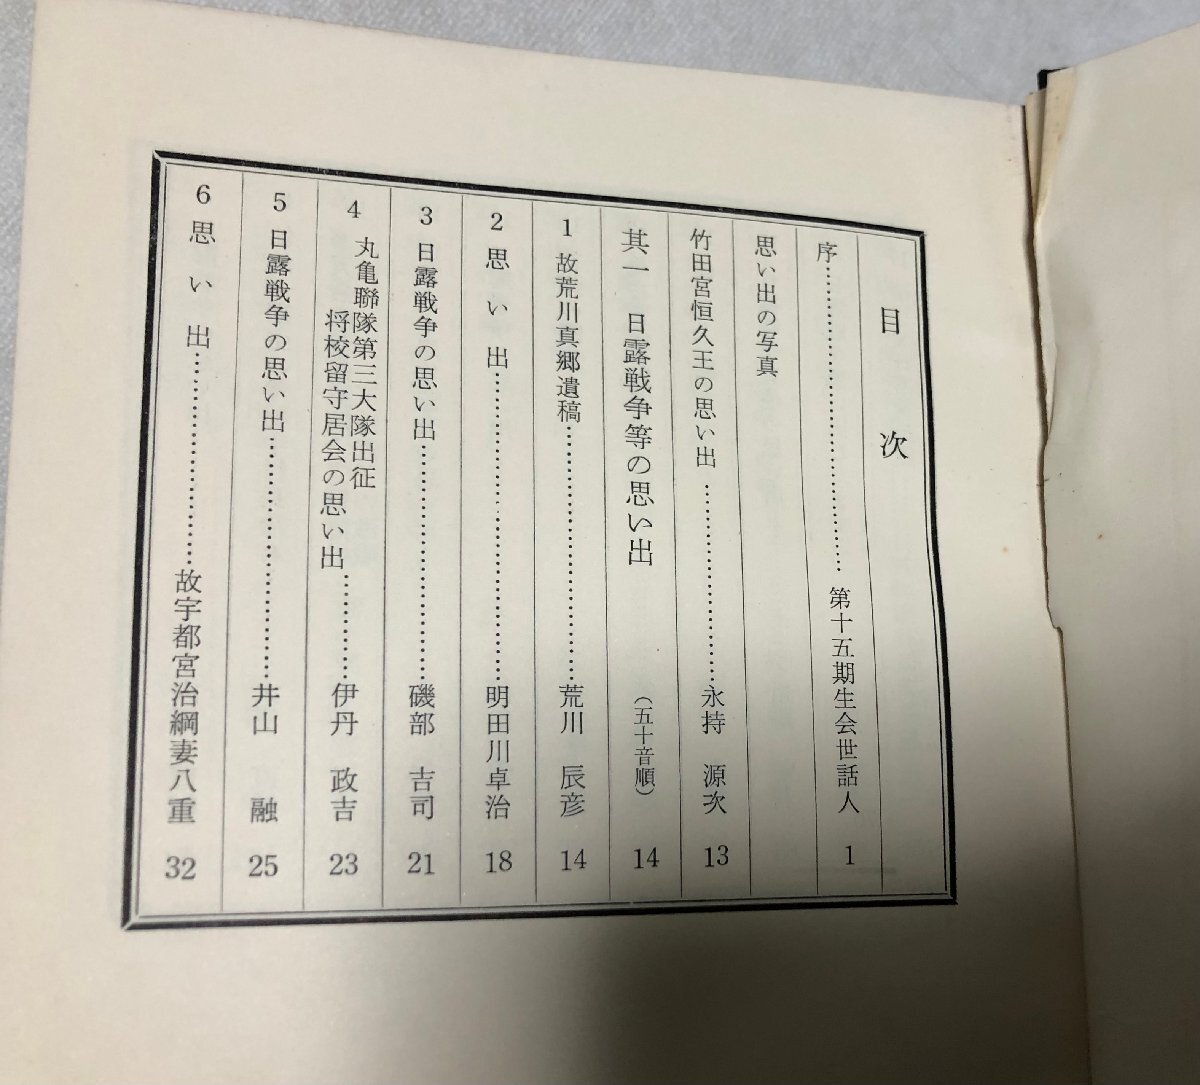 目次
序……………………………第十五期生会世話人 1
思い出の写真
竹田宮恒久王の思い出……………………永持 源次 13
其一 日露戦争等の思い出 (五十音順) 14
1 故荒川真郷遺稿……………………荒川 辰彦 14
2 思い出……………………明田川卓治 18
3 日露戦争の思い出……………………磯部 吉司 21
4 丸亀聯隊第三大隊出征
将校留守居会の思い出…………伊丹 政吉 23
5 日露戦争の思い出……………………井山 融 25
6 思い出……………………故宇都宮治綱妻八重 32